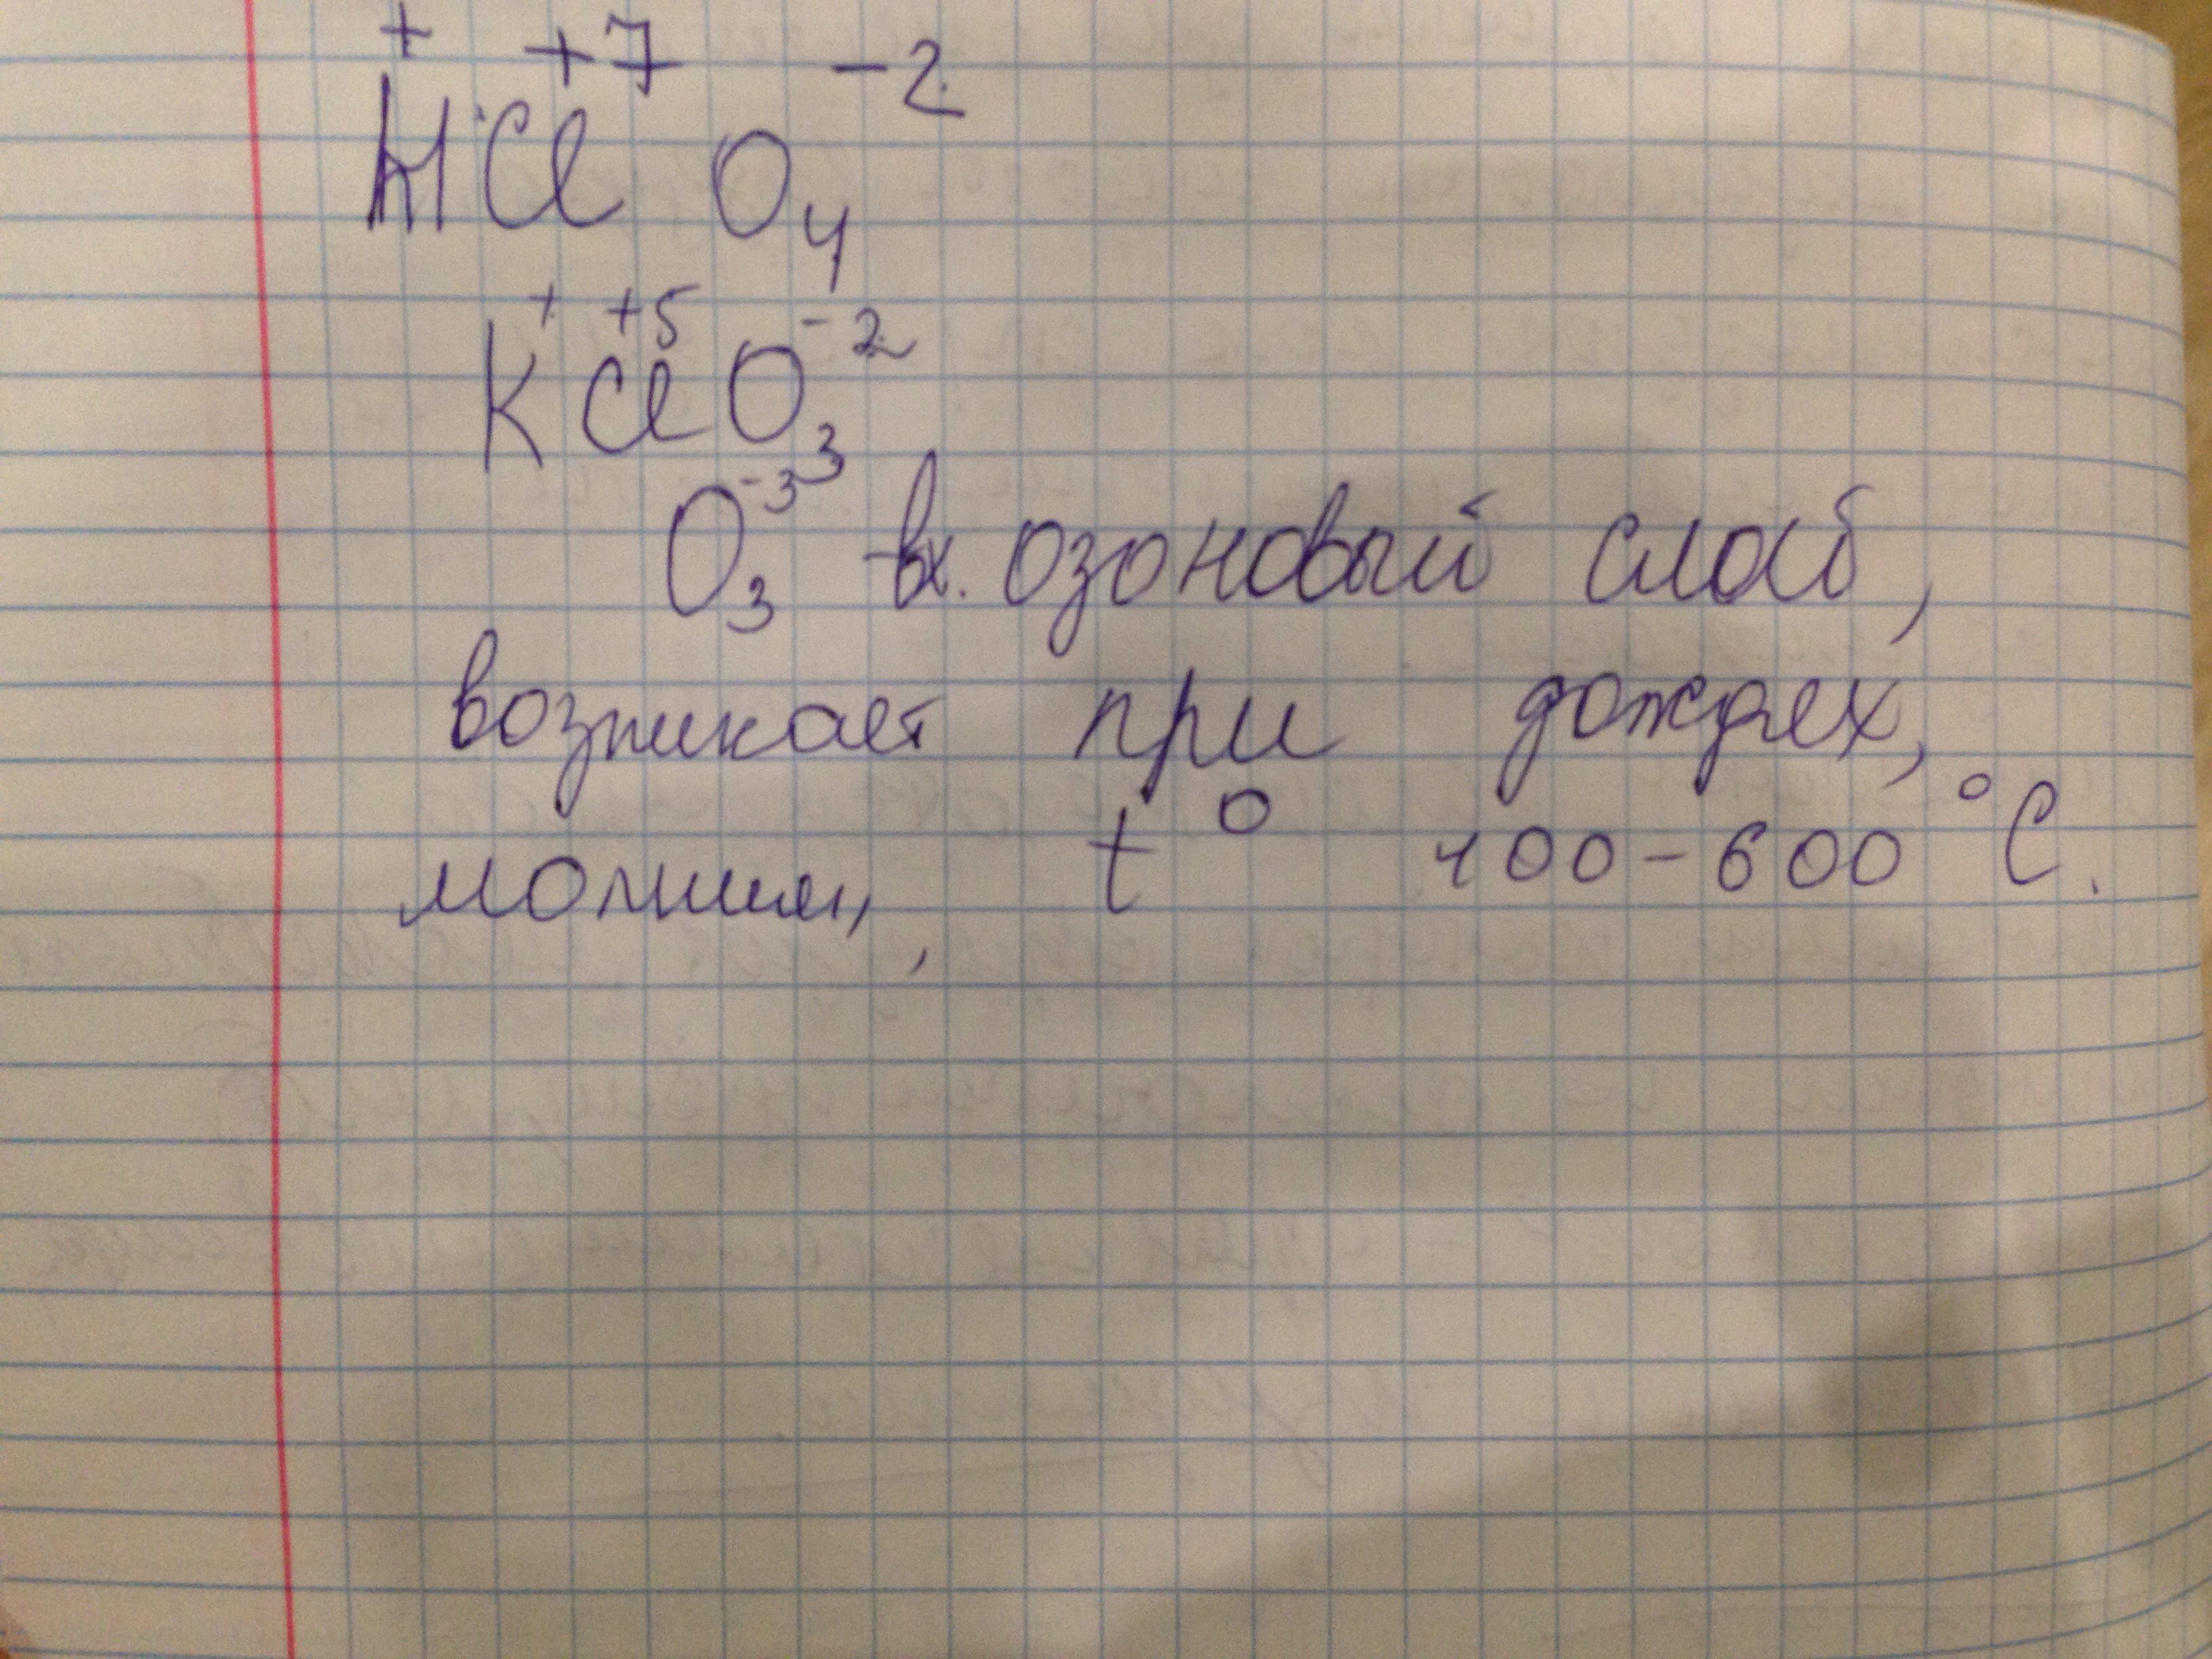 + +7 -2
HCl O₄
+ +5 -2
KClO₃
O₃⁻³ - вх. озоновый слой,
возникает при дождях,
молнии, t° 400-600°C.